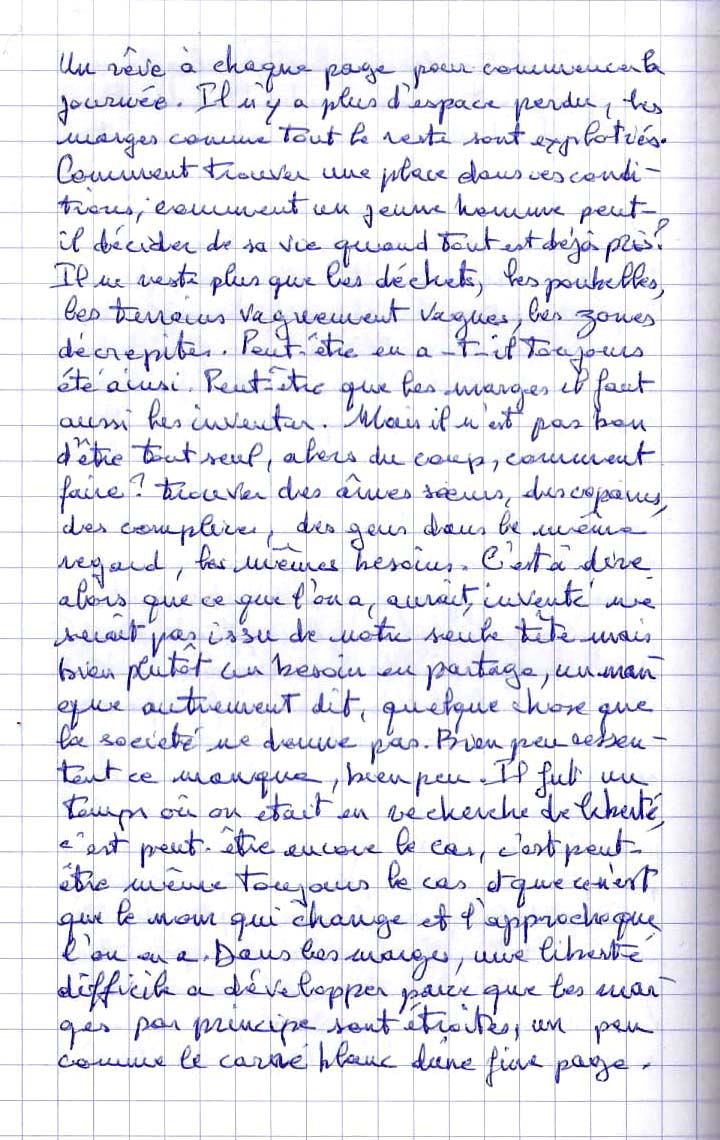 Un rêve à chaque page pour commencer la
journée. Il n'y a plus d'espace perdu, les
marges comme tout le reste sont exploitées.
Comment trouver une place dans ces condi-
tions, comment un jeune homme peut-
il décider de sa vie quand tout est déjà pris?
Il ne reste plus que les déchets, les poubelles,
les terrains vaguement vagues, les zones
décrepites. Peut-être en a-t-il toujours
été ainsi. Peut-être que les marges il faut
aussi les inventer. Mais il n'est pas bon
d'être tout seul, alors du coup, comment
faire? trouver des âmes sœurs, des copains,
des complices, des gens dans le même
regard, les mêmes besoins. C'est à dire
alors que ce que l'on a, aurait, inventé ne
serait pas issu de notre seule tête mais
bien plutôt un besoin en partage, un man-
que autrement dit, quelque chose que
la société ne donne pas. Bien peu ressen-
tent ce manque, bien peu. Il fut un
temps où on était en recherche de liberté,
c'est peut-être encore le cas, c'est peut-
être même toujours le cas et que ce n'est
que le nom qui change et l'approche que
l'on en a. Dans les marges, une liberté
difficile a développer parce que les mar-
ges par principe sont étroites, un peu
comme le carré blanc d'une fine page.